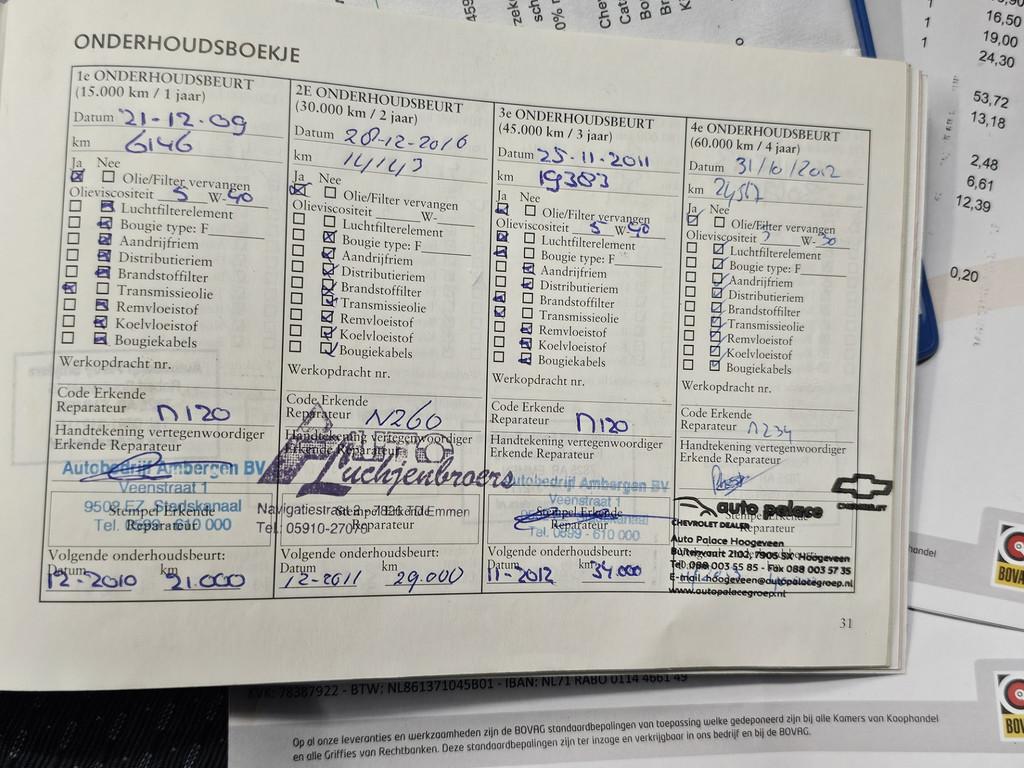 ONDERHOUDSBOEKJE
1e ONDERHOUDSBEURT
(15.000 km / 1 jaar)
Datum 21-12-09
km 6146
Ja Nee
Olie/Filter vervangen
Olieviscositeit 5 W-40
Luchtfilterelement
Bougie type: F
Aandrijfriem
Distributieriem
Brandstoffilter
Transmissieolie
Remvloeistof
Koelvloeistof
Bougiekabels
Werkopdracht nr.
Code Erkende
Reparateur N120
Handtekening vertegenwoordiger
Erkende Reparateur
Autobedrijf Ambergen BV
Veenstraat 1
9502 EZ Stadskanaal
Stempel Erkende
Tel. 0599 - 610 000
Reparateur
Volgende onderhoudsbeurt:
Datum km
12-2010 21.000
2E ONDERHOUDSBEURT
(30.000 km / 2 jaar)
Datum 28-12-2010
km 14143
Ja Nee
Olie/Filter vervangen
Olieviscositeit W-
Luchtfilterelement
Bougie type: F
Aandrijfriem
Distributieriem
Brandstoffilter
Transmissieolie
Remvloeistof
Koelvloeistof
Bougiekabels
Werkopdracht nr.
Code Erkende
Reparateur N260
Handtekening vertegenwoordiger
Erkende Reparateur
AUTO
Luchjenbroers
Navigatiestraat 2 - 7826 TD Emmen
Stempel Erkende
Tel.: 05910-27076
Reparateur
Volgende onderhoudsbeurt:
Datum km
12-2011 29.000
3e ONDERHOUDSBEURT
(45.000 km / 3 jaar)
Datum 25-11-2011
km 19383
Ja Nee
Olie/Filter vervangen
Olieviscositeit 5 W 40
Luchtfilterelement
Bougie type: F
Aandrijfriem
Distributieriem
Brandstoffilter
Transmissieolie
Remvloeistof
Koelvloeistof
Bougiekabels
Werkopdracht nr.
Code Erkende
Reparateur N120
Handtekening vertegenwoordiger
Erkende Reparateur
Autobedrijf Ambergen BV
Veenstraat 1
Stadskanaal
Stempel Erkende
Reparateur
Tel. 0599 - 610 000
Volgende onderhoudsbeurt:
Datum km
11-2012 34.000
4e ONDERHOUDSBEURT
(60.000 km / 4 jaar)
Datum 31/10/2012
km 24517
Ja Nee
Olie/Filter vervangen
Olieviscositeit 5 W-30
Luchtfilterelement
Bougie type: F
Aandrijfriem
Distributieriem
Brandstoffilter
Transmissieolie
Remvloeistof
Koelvloeistof
Bougiekabels
Werkopdracht nr.
Code Erkende
Reparateur N234
Handtekening vertegenwoordiger
Erkende Reparateur
CHEVROLET
auto palace
CHEVROLET DEALER
Stempel Erkende
Auto Palace Hoogeveen
Buitenvaart 2102, 7905 SX Hoogeveen
Tel. 088 003 55 85 - Fax 088 003 57 35
E-mail hoogeveen@autopalacegroep.nl
www.autopalacegroep.nl
31
1 16,50
1 19,00
1 24,30
53,72
13,18
2,48
6,61
12,39
0,20
handel
BOVAG
KVK: 78387922 - BTW: NL861371045B01 - IBAN: NL71 RABO 0114 4661 49
Op al onze leveranties en werkzaamheden zijn de BOVAG standaardbepalingen van toepassing welke gedeponeerd zijn bij alle Kamers van Koophandel
en alle Griffies van Rechtbanken. Deze standaardbepalingen zijn ter inzage en verkrijgbaar in ons bedrijf en bij de BOVAG.